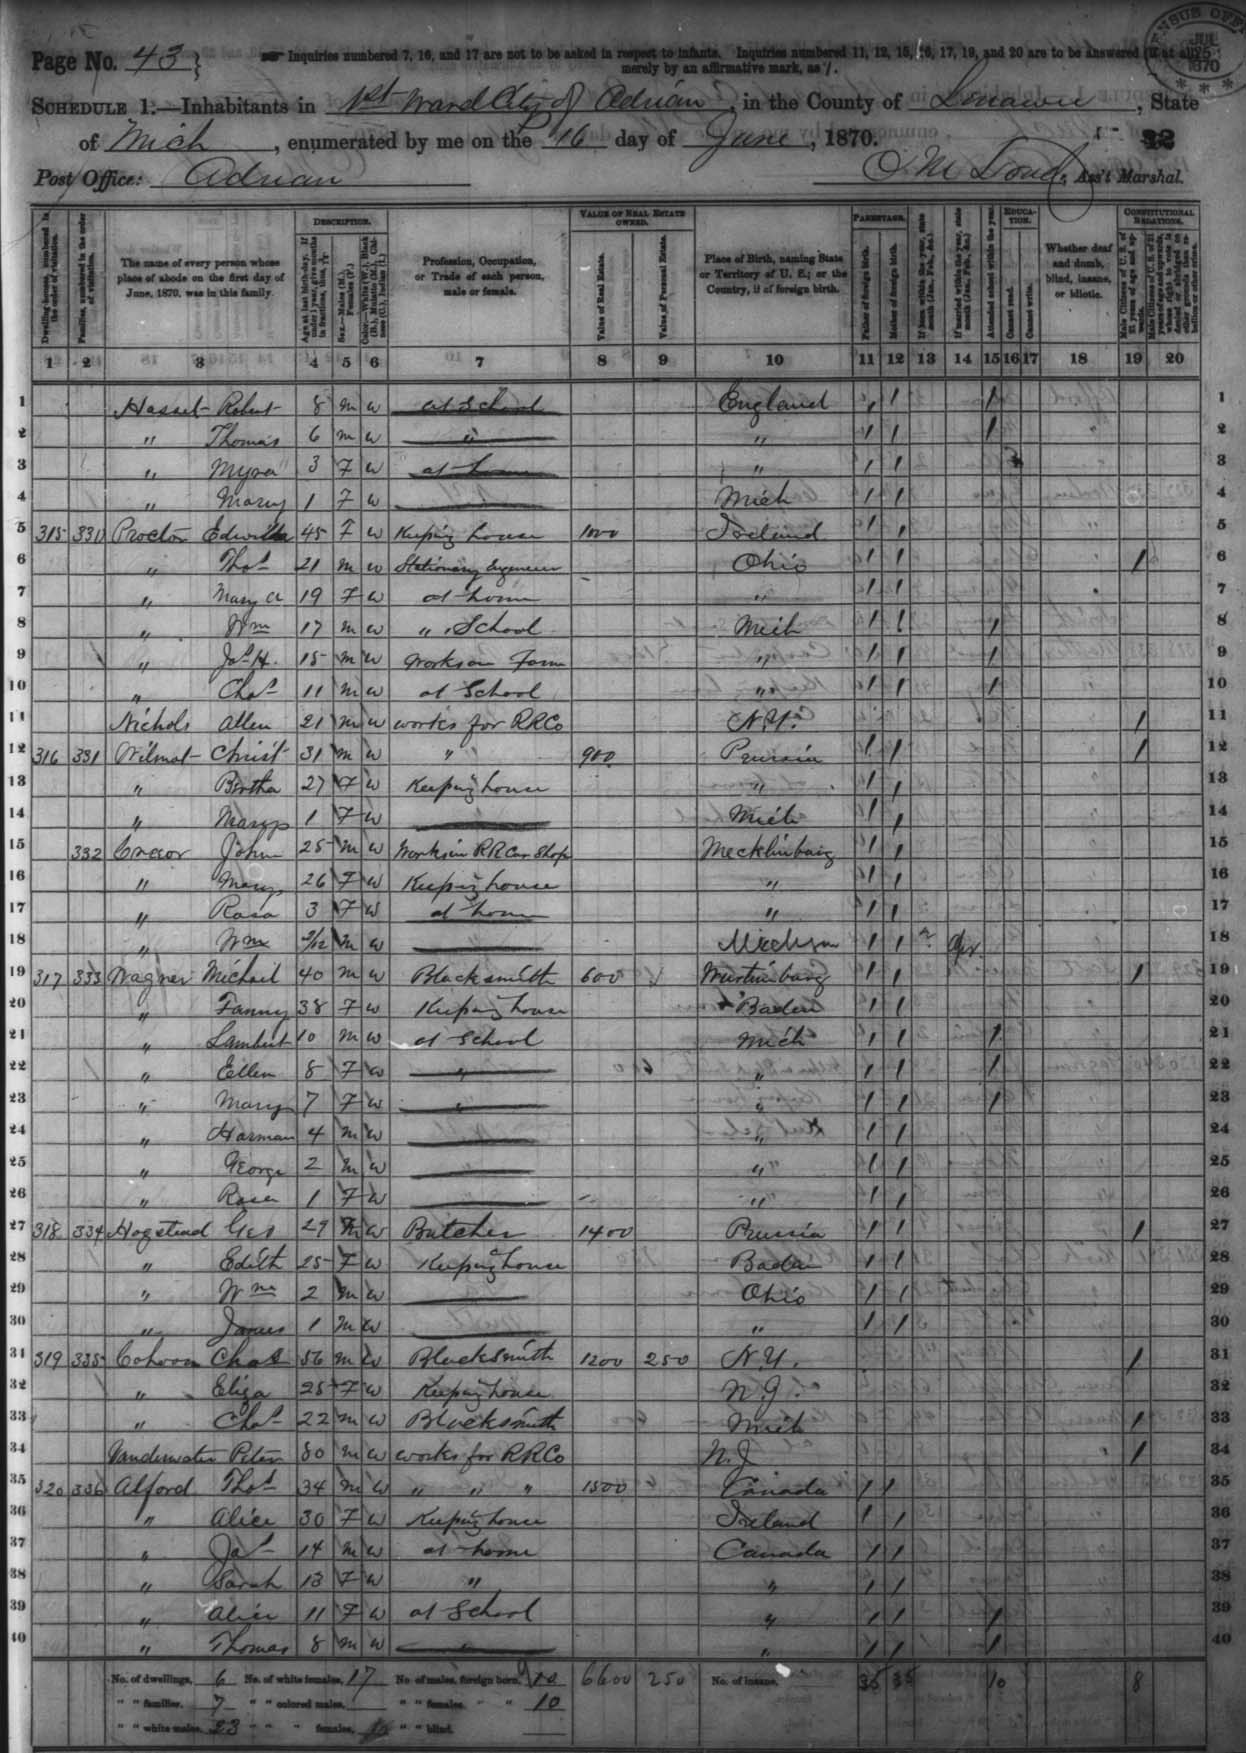 Page No. 43
Inquiries numbered 7, 16, and 17 are not to be asked in respect to infants. Inquiries numbered 11, 12, 15, 16, 17, 19, and 20 are to be answered (if at all)
merely by an affirmative mark, as /.
CENSUS OFFICE 1870
SCHEDULE 1.—Inhabitants in 1st Ward City of Adrian, in the County of Lenawee, State
of Mich, enumerated by me on the 16 day of June, 1870.
Post Office: Adrian
Ass't Marshal.
DESCRIPTION. VALUE OF REAL ESTATE OWNED. PARENTAGE. EDUCATION. CONSTITUTIONAL RELATIONS.
Dwelling-houses, numbered in the order of visitation.
Families, numbered in the order of visitation.
The name of every person whose place of abode on the first day of June, 1870, was in this family.
Age at last birth-day. If under 1 year, give months in fractions, thus, 3/12
Sex.—Males (M.), Females (F.)
Color.—White (W.), Black (B.), Mulatto (M.), Chinese (C.), Indian (I.)
Profession, Occupation, or Trade of each person, male or female.
Value of Real Estate.
Value of Personal Estate.
Place of Birth, naming State or Territory of U. S.; or the Country, if of foreign birth.
Father of foreign birth.
Mother of foreign birth.
If born within the year, state month (Jan., Feb., &c.)
If married within the year, state month (Jan., Feb., &c.)
Attended school within the year.
Cannot read.
Cannot write.
Whether deaf and dumb, blind, insane, or idiotic.
Male Citizens of U. S. of 21 years of age and upwards.
1 2 3 4 5 6 7 8 9 10 11 12 13 14 15 16 17 18 19 20
1 Robert 8 m w at School England / / / 1
2 " Thomas 6 m w " " / / / 2
3 " Myra 3 F w at home " / / 3
4 " Mary 1 F w Mich / / 4
5 315 330 Proctor 45 F w Keeping house 1000 Ireland / / 5
6 " Thos 21 m w Stationary Engineer Ohio / / / 6
7 " Mary A 19 F w at home " / / 7
8 " Wm 17 m w " School Mich / / / 8
9 " Jas H. 15 m w works on Farm " / / / 9
10 " Chas 11 m w at School " / / / 10
11 Nichols Allen 21 m w works for RRCo N.Y. / 11
12 316 331 Wilmot Christ 31 m w " 900 Prussia / / / 12
13 " Bertha 27 F w Keeping house " / / 13
14 " Mary 1 F w Mich / / 14
15 332 John 25 m w Works in RR Car Shop Mecklinburg / / 15
16 " Mary 26 F w Keeping house " / / 16
17 " Rosa 3 F w at home " / / 17
18 " Wm 2/12 m w " / / Apr 18
19 317 333 Wagner Michail 40 m w Blacksmith 600 Wurtinburg / / / 19
20 " Fanny 38 F w Keeping house Baden / / 20
21 " Lambert 10 m w at School Mich / / / 21
22 " Ellen 8 F w " " / / / 22
23 " Mary 7 F w " " / / / 23
24 " Harman 4 m w " / / 24
25 " George 2 m w " / / 25
26 " Rosa 1 F w " / / 26
27 318 334 Hogstead Geo 29 m w Butcher 1400 Prussia / / / 27
28 " Edith 25 F w Keeping house Baden / / 28
29 " Wm 2 m w Ohio / / 29
30 " James 1 m w " / / 30
31 319 335 Chas 56 m w Blacksmith 1200 250 N.Y. / 31
32 " Eliza 25 F w Keeping house N.J. 32
33 " Chas 22 m w Blacksmith Mich / 33
34 Vanderwater Peter 80 m w works for RRCo N.J / 34
35 320 336 Alford Thos 34 m w " " " 1500 Canada / / 35
36 " Alice 30 F w Keeping house Ireland / / 36
37 " Jas 14 m w at home Canada / / 37
38 " Sarah 13 F w " " / / 38
39 " Alice 11 F w at School " / / / 39
40 " Thomas 8 m w " " / / / 40
No. of dwellings, 6 No. of white females, 17 No. of males, foreign born, 10 6600 250 No. of insane, 35 35 10 8
" " families, 7 " " colored males, " " females, " " 10
" " white males, 23 " " " females, " " blind,